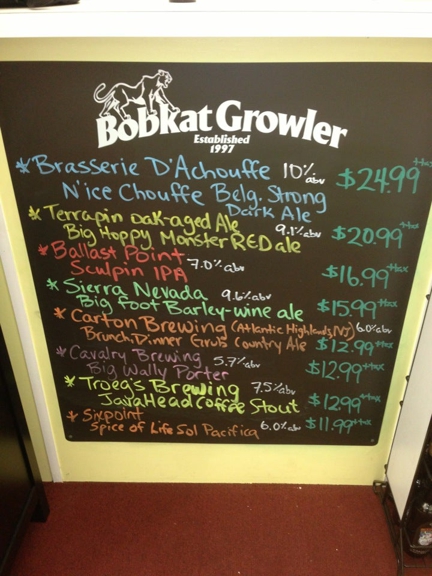 Bobkat Growler
Established
1997
* Brasserie D'Achouffe 10% abv $24.99 +tax
N'ice Chouffe Belg. Strong
Dark Ale
* Terrapin Oak-aged Ale 9.1% abv $20.99 +tax
Big Hoppy Monster RED ale
* Ballast Point 7.0% abv $16.99 +tax
Sculpin IPA
* Sierra Nevada 9.6% abv $15.99 +tax
Big foot Barley-wine ale
* Carton Brewing (Atlantic Highlands, NJ) 6.0% abv $12.99 +tax
Brunch.Dinner.Grub Country Ale
* Cavalry Brewing 5.7% abv $12.99 +tax
Big Wally Porter
* Troeg's Brewing 7.5% abv $12.99 +tax
JavaHead Coffee Stout
* Sixpoint 6.0% abv $11.99 +tax
Spice of Life Sol Pacifica